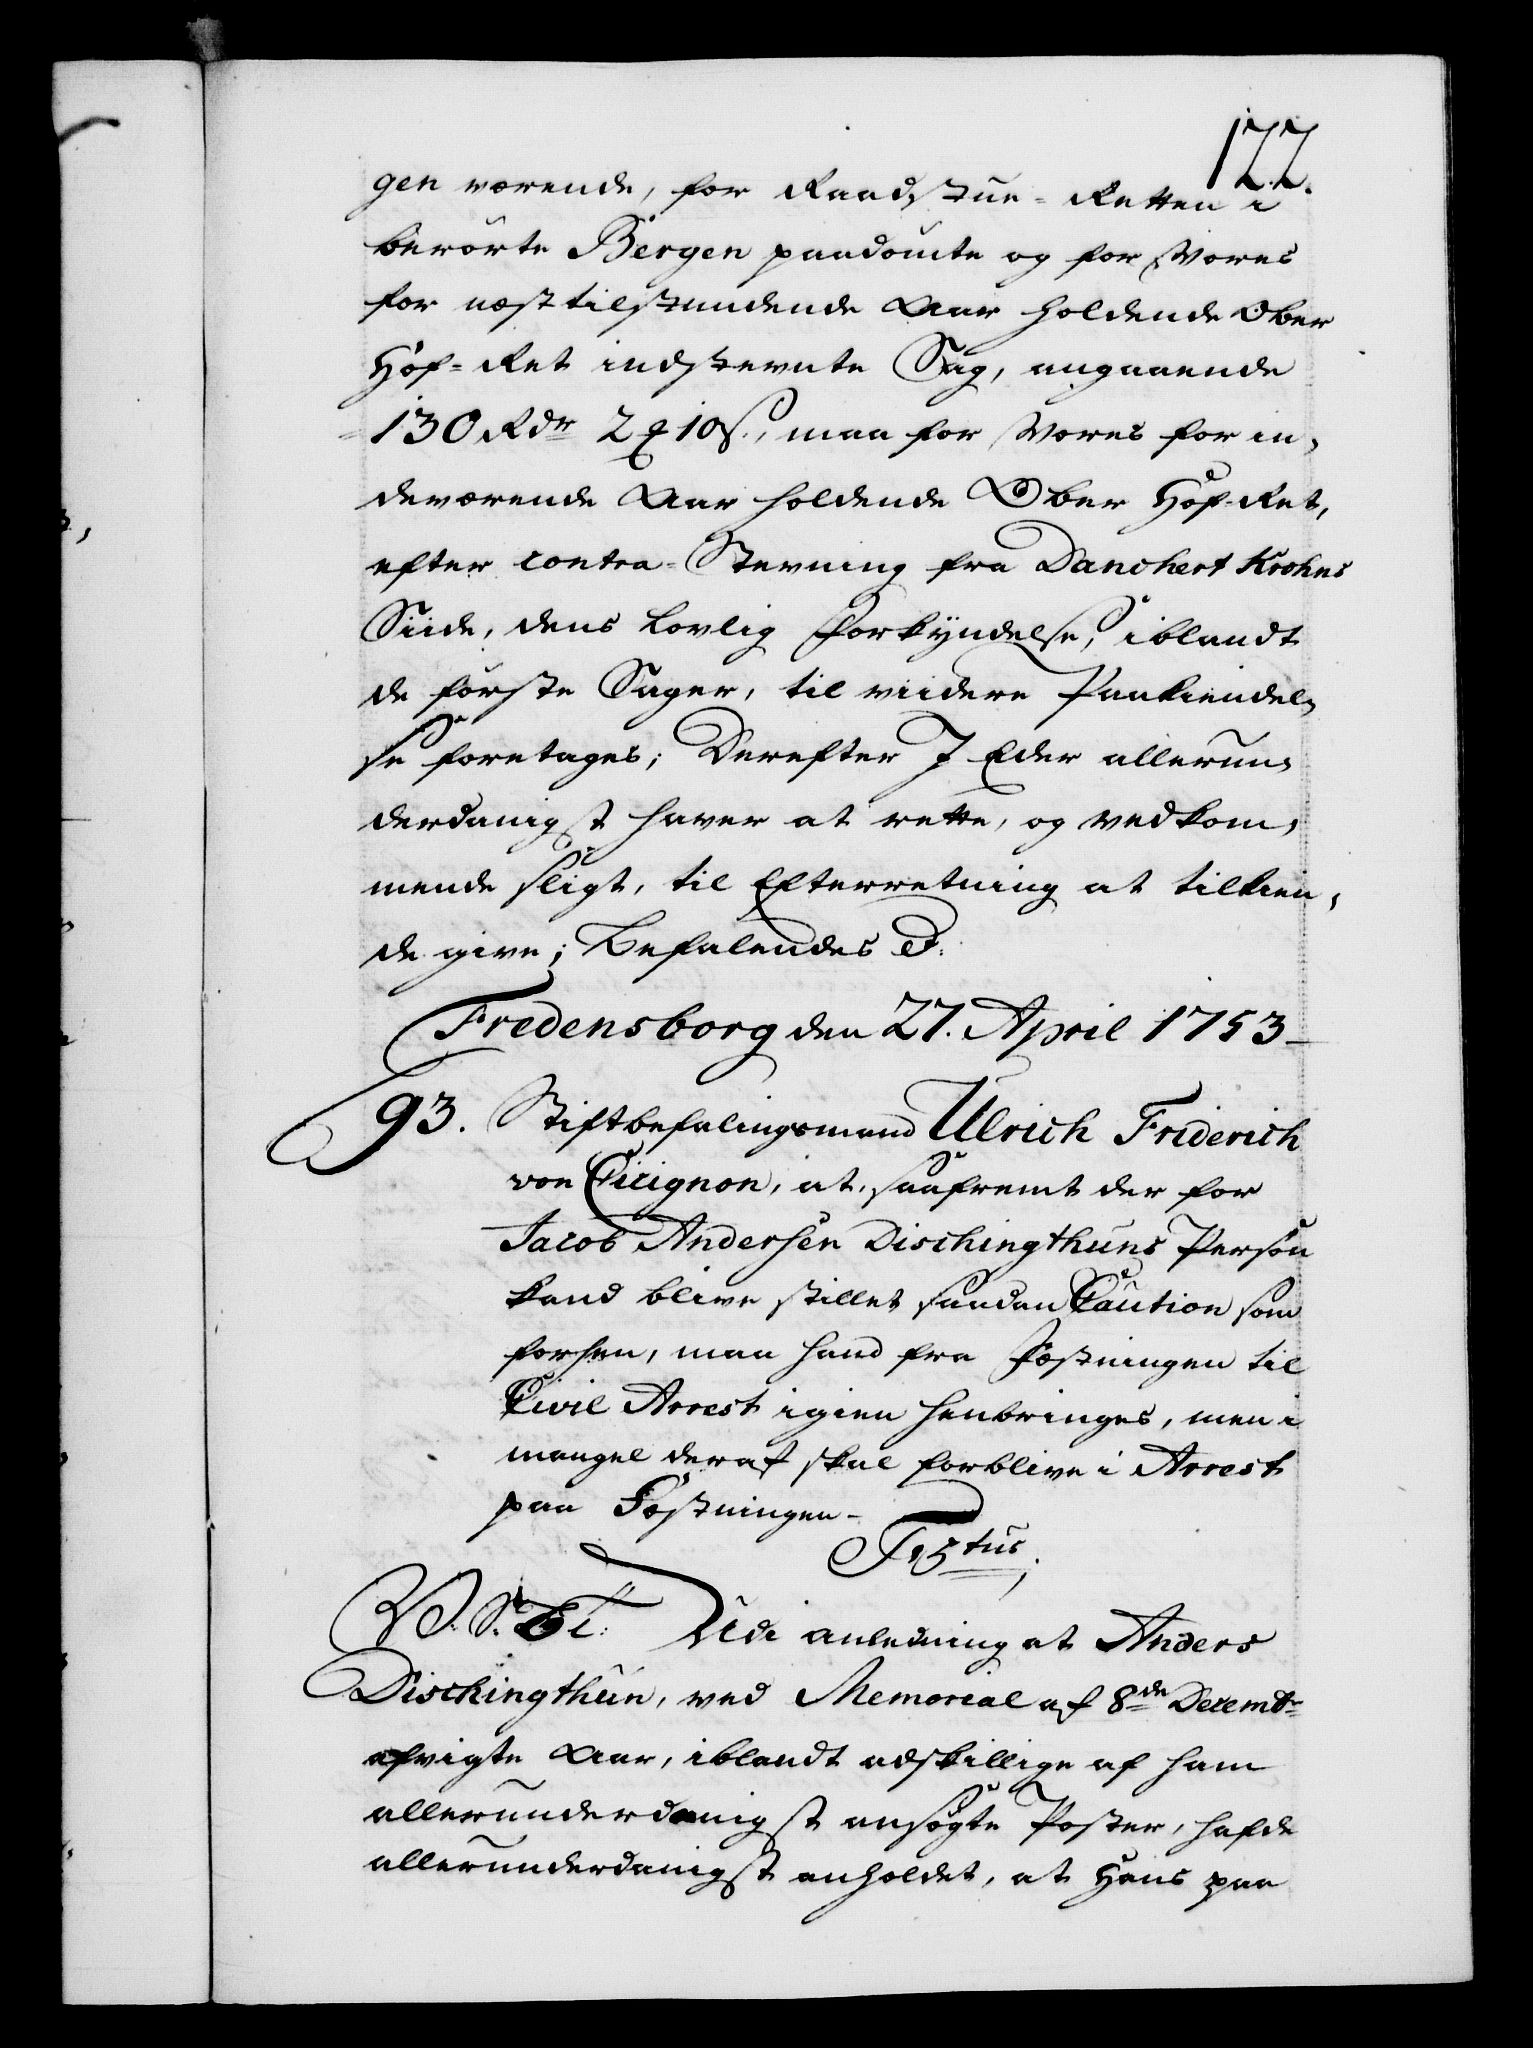 177.
gen værende, for Raadstue-Retten i
berørte Bergen paadømte og for Vores
for næsttilstundende Aar holdende Ober
Hof-Ret indstevnte Sag, angaaende
130 Rdr 2 ₰ 10 ß., maa for Vores for in,
deværende Aar holdende Ober Hof-Ret,
efter contra-Stevning fra Danchert Krohns
Siide, dens lovlig Forkyndelse, iblandt
de første Sager, til viidere Paakiendel,
se foretages; Derefter I Eder allerun,
derdanigst haver at rette, og vedkom,
mende sligt, til Efterretning at tilkien,
de give; Befalendes etc:
Fredensborg den 27. April 1753
93. Stiftbefalingsmand Ulrich Friderich
von Cicignon, at, saafremt der for
Jacob Andersen Dischingthuns Person
kand blive stillet saadan Caution som
forhen, maa hand fra Fæstningen til
Civil Arrest igien henbringes, men i
mangel deraf skal forblive i Arrest
paa Fæstningen-
F. 5tus.
Udi anledning at Anders
Dischingthun, ved Memorial af 8de Decembr
afvigte Aar, iblandt adskillige af ham
allerunderdanigst ansøgte Poster, hafde
allerunderdanigst anholdet, at Hans paa